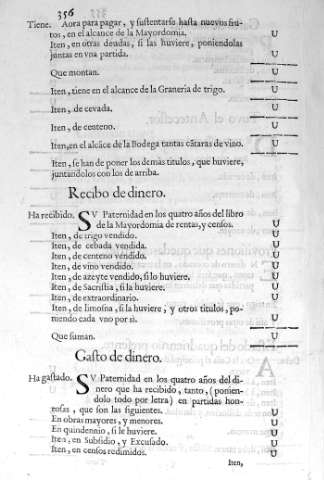 356
Tiene. Aora para pagar, y sustentarse hasta nuevos fru-
tos, en el alcance de la Mayordomia. U
Iten, en otras deudas, si las huviere, poniendolas
juntas en vna partida. U
Que montan. U
Iten, tiene en el alcance de la Graneria de trigo. U
Iten, de cevada. U
Iten, de centeno. U
Iten, en el alcãce de la Bodega tantas cãtaras de vino. U
Iten, se han de poner los demàs titulos, que huviere,
juntandolos con los de arriba. U
Recibo de dinero.
Ha recibido. SV Paternidad en los quatro años del libro
de la Mayordomia de rentas, y censos. U
Iten, de trigo vendido. U
Iten, de cebada vendida. U
Iten, de centeno vendido. U
Iten, de vino vendido. U
Iten, de azeyte vendido, si lo huviere. U
Iten, de Sacristia, si la huviere. U
Iten, de extraordinario. U
Iten, de limosna, si la huviere, y otros titulos, po-
niendo cada vno por sì. U
Que suman. U
Gasto de dinero.
Ha gastado. SV Paternidad en los quatro años del di-
nero que ha recibido, tanto, (ponien-
dolo todo por letra) en partidas hon-
rosas, que son las siguientes. U
En obras mayores, y menores. U
En quindennio, si le huviere. U
Iten, en Subsidio, y Excusado. U
Iten, en censos redimidos. U
Iten,